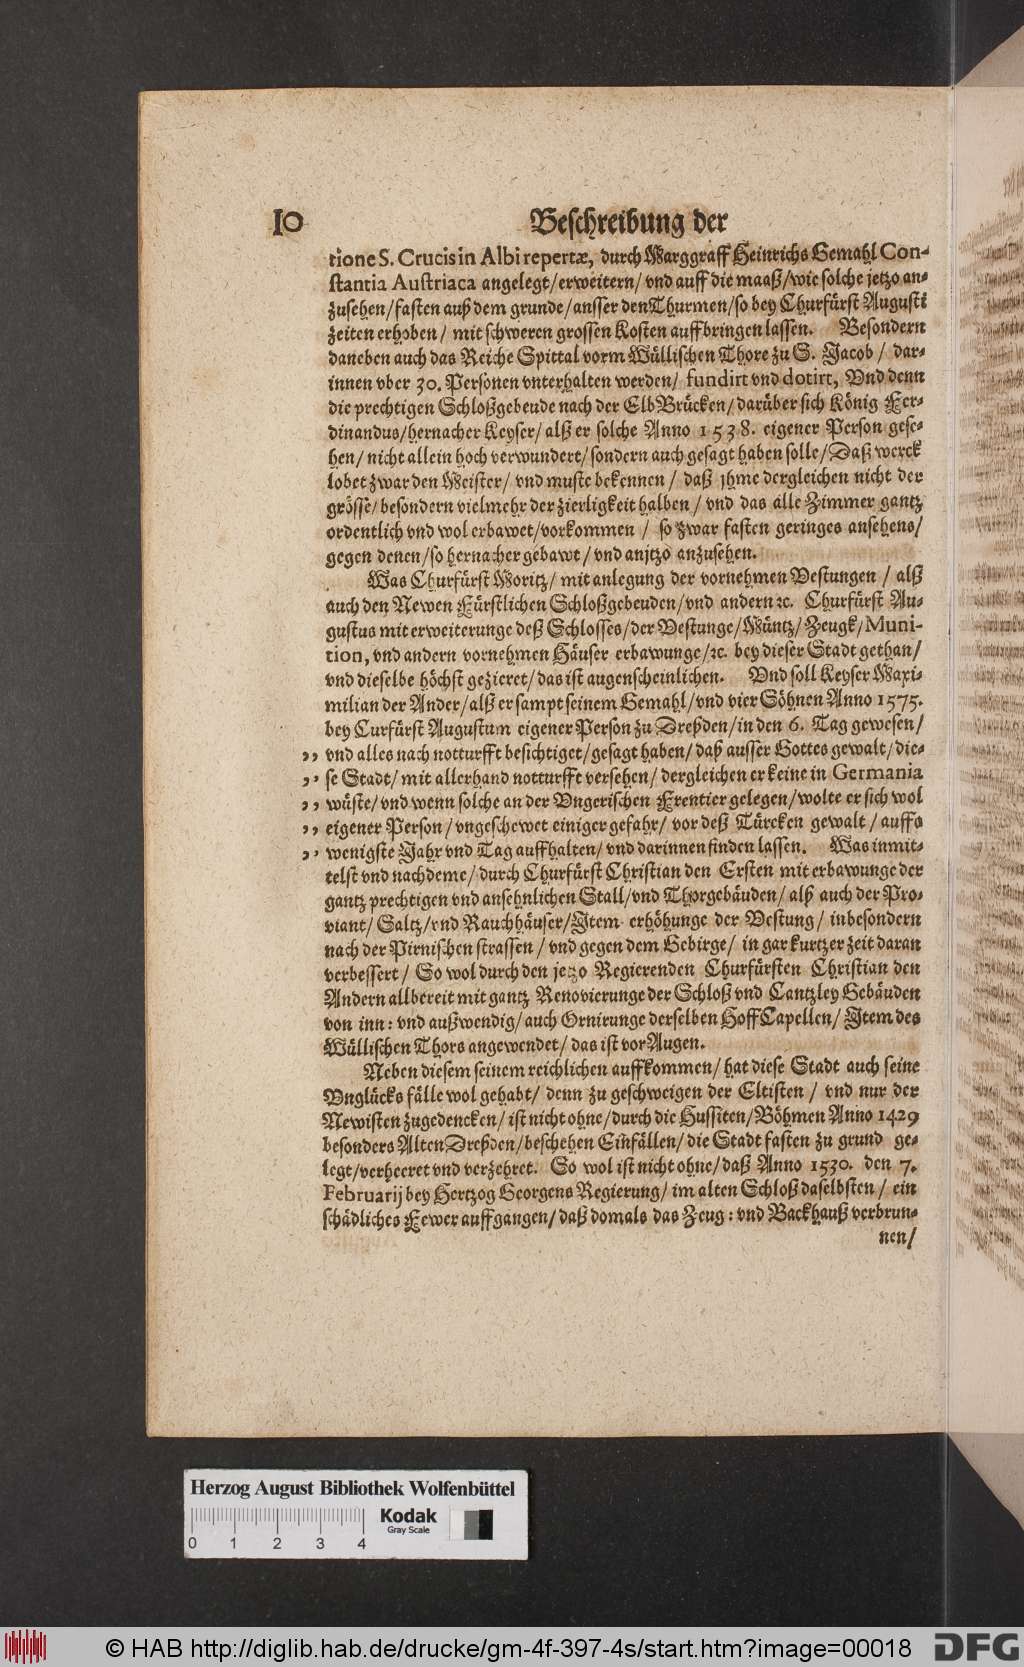 10 Beschreibung der
tione S. Crucis in Albi repertæ, durch Marggraff Heinrichs Gemahl Con-
stantia Austriaca angelegt/erweitern/ vnd auff die maaß/wie solche jetzo an-
zusehen/fasten auß dem grunde/ausser den Thurmen/so bey Churfürst Augusti
zeiten erhoben/ mit schweren grossen Kosten auffbringen lassen. Besondern
daneben auch das Reiche Spittal vorm Wüllischen Thore zu S. Jacob/ dar-
innen vber 30. Personen vnterhalten werden/ fundirt vnd dotirt, Vnd denn
die prechtigen Schloßgebeude nach der ElbBrücken/darüber sich König Fer-
dinandus/hernacher Keyser/alß er solche Anno 1538. eigener Person gese-
hen/ nicht allein hoch verwundert/sondern auch gesagt haben solle/Daß werck
lobet zwar den Meister/ vnd muste bekennen/ daß jhme dergleichen nicht der
grösse/besondern vielmehr der zierligkeit halben/ vnd das alle Zimmer gantz
ordentlich vnd wol erbawet/vorkommen/ so zwar fasten geringes ansehens/
gegen denen/so hernacher gebawt/vnd anjtzo anzusehen.
Was Churfürst Moritz/ mit anlegung der vornehmen Vestungen/ alß
auch den Newen Fürstlichen Schloßgebeuden/vnd andern ꝛc. Churfürst Au-
gustus mit erweiterunge deß Schlosses/der Vestunge/Müntz/Zeugk/Muni-
tion, vnd andern vornehmen Häuser erbawunge/ꝛc. bey dieser Stadt gethan/
vnd dieselbe höchst gezieret/das ist augenscheinlichen. Vnd soll Keyser Maxi-
milian der Ander/alß er sampt seinem Gemahl/vnd vier Söhnen Anno 1575.
bey Curfürst Augustum eigener Person zu Dreßden/in den 6. Tag gewesen/
,, vnd alles nach notturfft besichtiget/gesagt haben/daß ausser Gottes gewalt/die-
,, se Stadt/mit allerhand notturfft versehen/dergleichen er keine in Germania
,, wüste/vnd wenn solche an der Vngerischen Frentier gelegen/wolte er sich wol
,, eigener Person/vngeschewet einiger gefahr/vor deß Türcken gewalt/auffs
,, wenigste Jahr vnd Tag auffhalten/vnd darinnen finden lassen. Was inmit-
telst vnd nachdeme/durch Churfürst Christian den Ersten mit erbawunge der
gantz prechtigen vnd ansehnlichen Stall/vnd Thorgebäuden/alß auch der Pro-
viant/Saltz/vnd Rauchhäuser/Item erhöhunge der Vestung/inbesondern
nach der Pirnischen strassen/vnd gegen dem Gebirge/ in gar kurtzer zeit daran
verbessert/ So wol durch den jetzo Regierenden Churfürsten Christian den
Andern allbereit mit gantz Renovierunge der Schloß vnd Cantzley Gebäuden
von inn: vnd außwendig/auch Ornirunge derselben HoffCapellen/Item des
Wüllischen Thors angewendet/das ist vor Augen.
Neben diesem seinem reichlichen auffkommen/hat diese Stadt auch seine
Vnglücks fälle wol gehabt/ denn zu geschweigen der Eltisten/ vnd nur der
Newisten zugedencken/ist nicht ohne/durch die Hussiten/Böhmen Anno 1429
besonders Alten Dreßden/beschehen Einfällen/die Stadt fasten zu grund ge-
legt/verheeret vnd verzehret. So wol ist nicht ohne/daß Anno 1530. den 7.
Februarij bey Hertzog Georgens Regierung/im alten Schloß daselbsten/ ein
schädliches Fewer auffgangen/daß domals das Zeug: vnd Backhauß verbrun-
nen/
Herzog August Bibliothek Wolfenbüttel
0 1 2 3 4
Kodak
Gray Scale
© HAB http://diglib.hab.de/drucke/gm-4f-397-4s/start.htm?image=00018
DFG